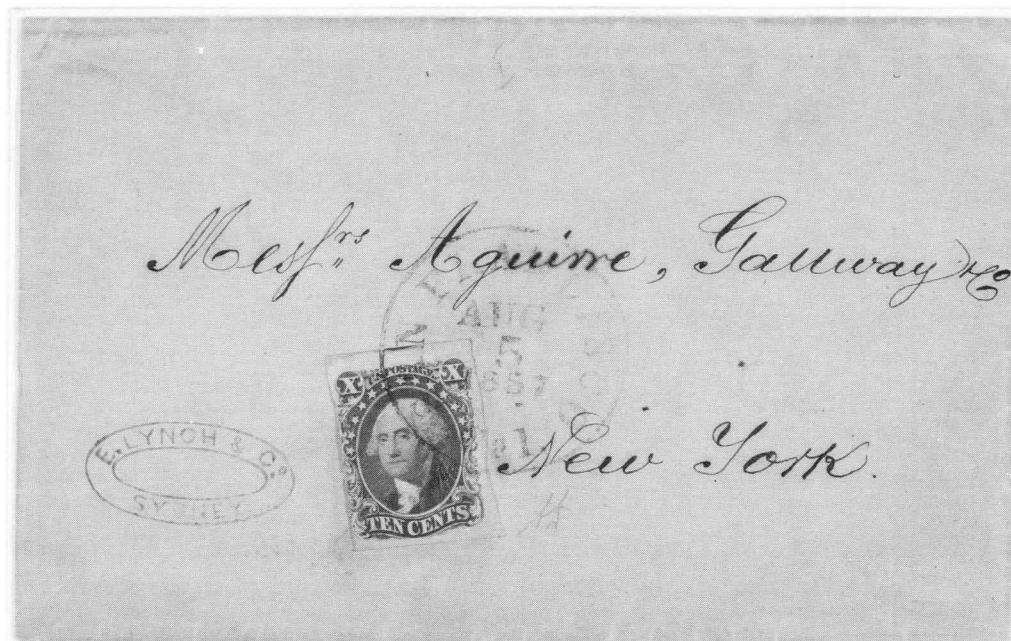 Messrs Aguirre, Gallway & Co
AUG
5
1857
X U.S. POSTAGE X
TEN CENTS
E. LYNCH & Co.
SYDNEY
New York.